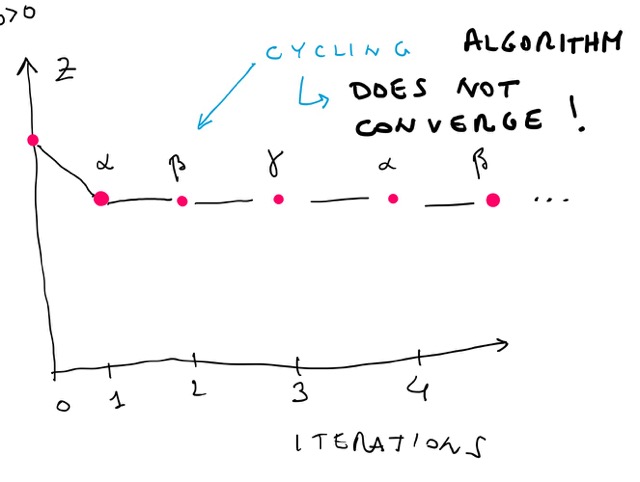 >0
Z
CYCLING ALGORITHM
↳ DOES NOT
CONVERGE!
α β γ α β
...
0 1 2 3 4
ITERATIONS